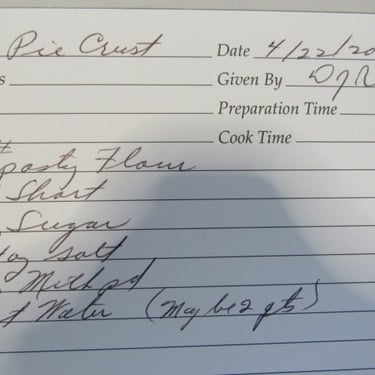 Pie Crust Date 4/22/20
s Given By
Preparation Time
Cook Time
pasty Flour
Short
Sugar
salt
Method
t Water (Maybe 2 qts)